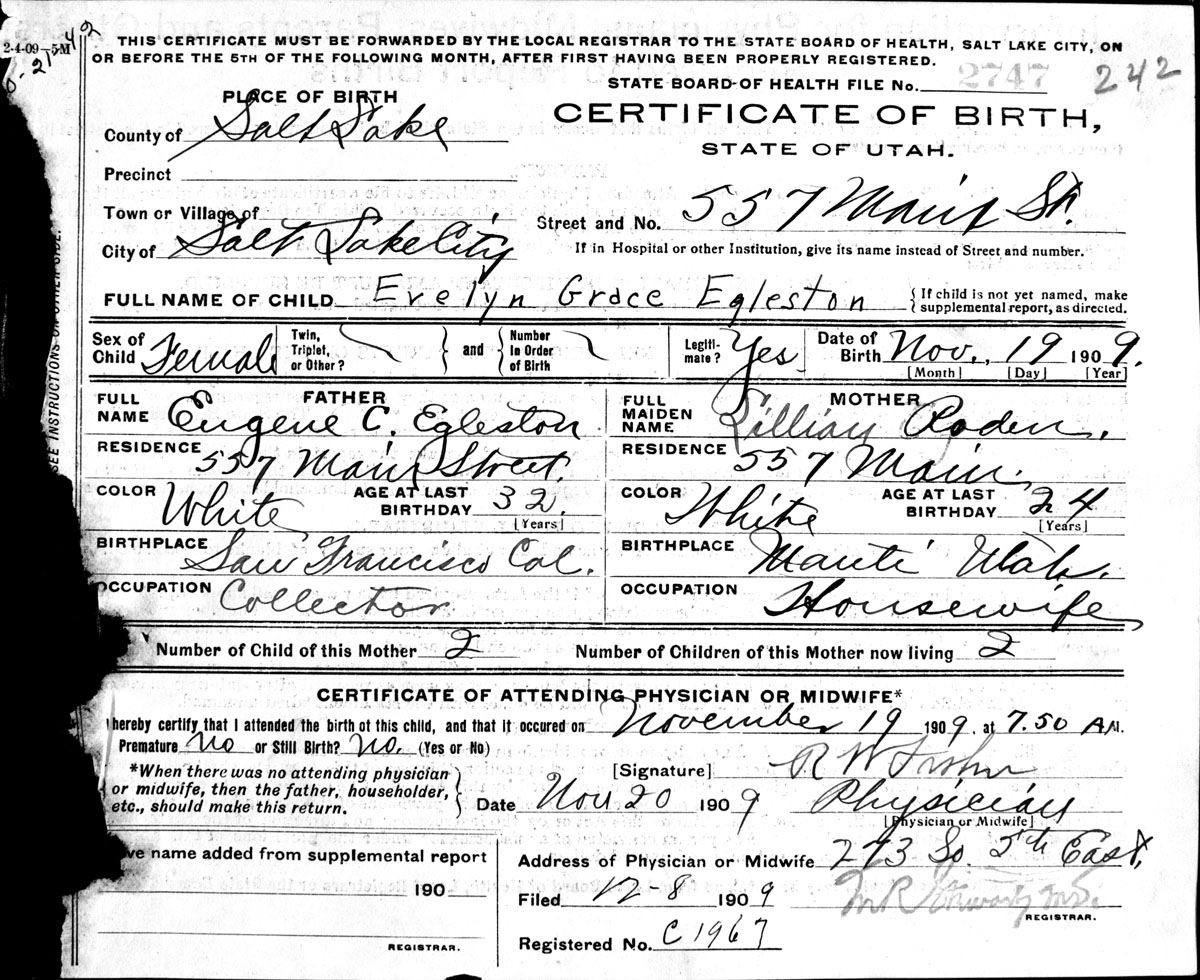 2-4-09—5M
THIS CERTIFICATE MUST BE FORWARDED BY THE LOCAL REGISTRAR TO THE STATE BOARD OF HEALTH, SALT LAKE CITY, ON
OR BEFORE THE 5TH OF THE FOLLOWING MONTH, AFTER FIRST HAVING BEEN PROPERLY REGISTERED.
STATE BOARD OF HEALTH FILE No. 2747 242
PLACE OF BIRTH
CERTIFICATE OF BIRTH,
STATE OF UTAH.
County of Salt Lake
Precinct
Town or Village of
Street and No. 557 Main St.
City of Salt Lake City
If in Hospital or other Institution, give its name instead of Street and number.
FULL NAME OF CHILD Evelyn Grace Egleston {If child is not yet named, make supplemental report, as directed.
Sex of Child Female Twin, Triplet, or Other? } and { Number In Order of Birth Legiti-mate? Yes Date of Birth Nov. 19 1909.
[Month] [Day] [Year]
FATHER MOTHER
FULL NAME Eugene C. Egleston FULL MAIDEN NAME Lillian Roden.
RESIDENCE 557 Main Street. RESIDENCE 557 Main.
COLOR White AGE AT LAST BIRTHDAY 32. [Years] COLOR White AGE AT LAST BIRTHDAY 24 [Years]
BIRTHPLACE San Francisco Cal. BIRTHPLACE Manti Utah.
OCCUPATION Collector OCCUPATION Housewife
Number of Child of this Mother 2 Number of Children of this Mother now living 2
CERTIFICATE OF ATTENDING PHYSICIAN OR MIDWIFE*
hereby certify that I attended the birth of this child, and that it occured on November 19 1909. at 7.50 A.M.
Premature No or Still Birth? No. (Yes or No)
*When there was no attending physician
or midwife, then the father, householder,
etc., should make this return.
[Signature] R W
Date Nov 20 1909 Physician
[Physician or Midwife]
ve name added from supplemental report
190
REGISTRAR.
Address of Physician or Midwife 273 So. 5th East.
Filed 12-8 1909
REGISTRAR.
Registered No. C 1967
SEE INSTRUCTIONS ON OTHER SIDE.